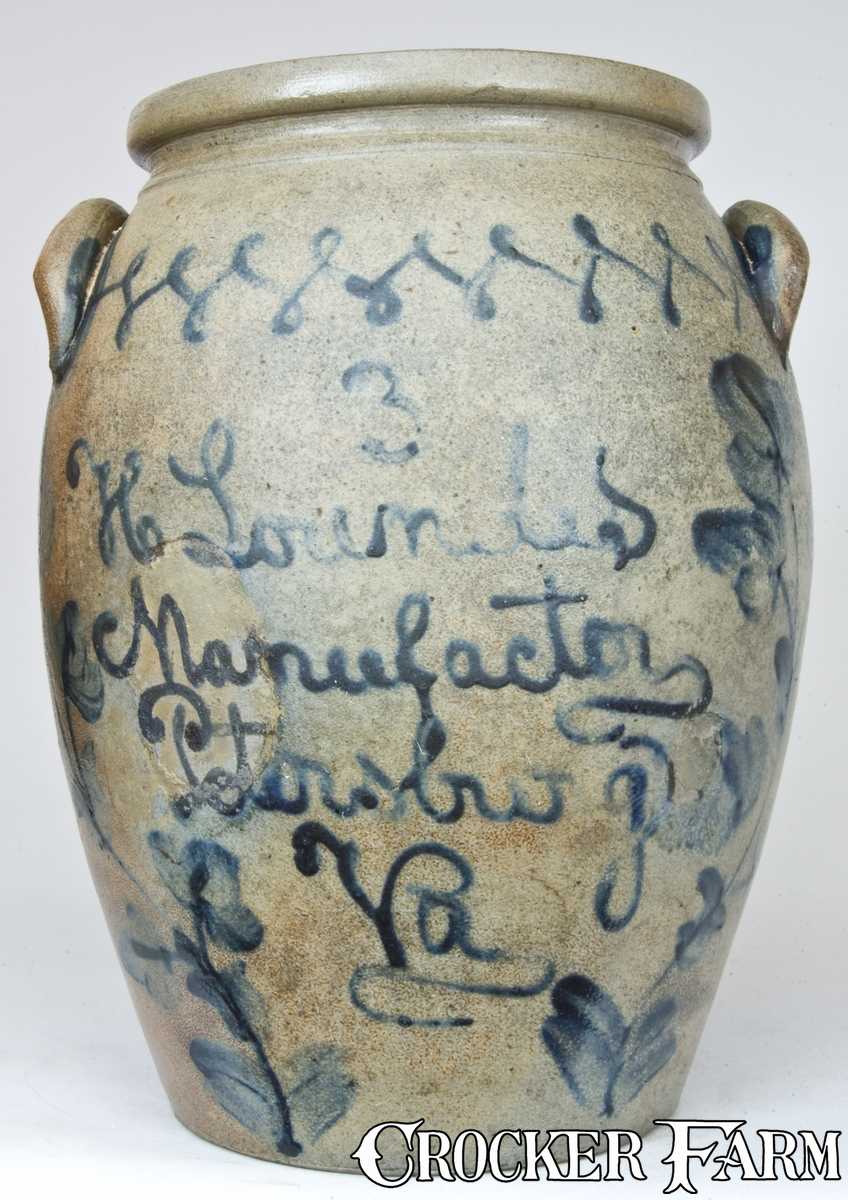 3
H Lowndes
Manufactor
Petersburg
Va
CROCKER FARM